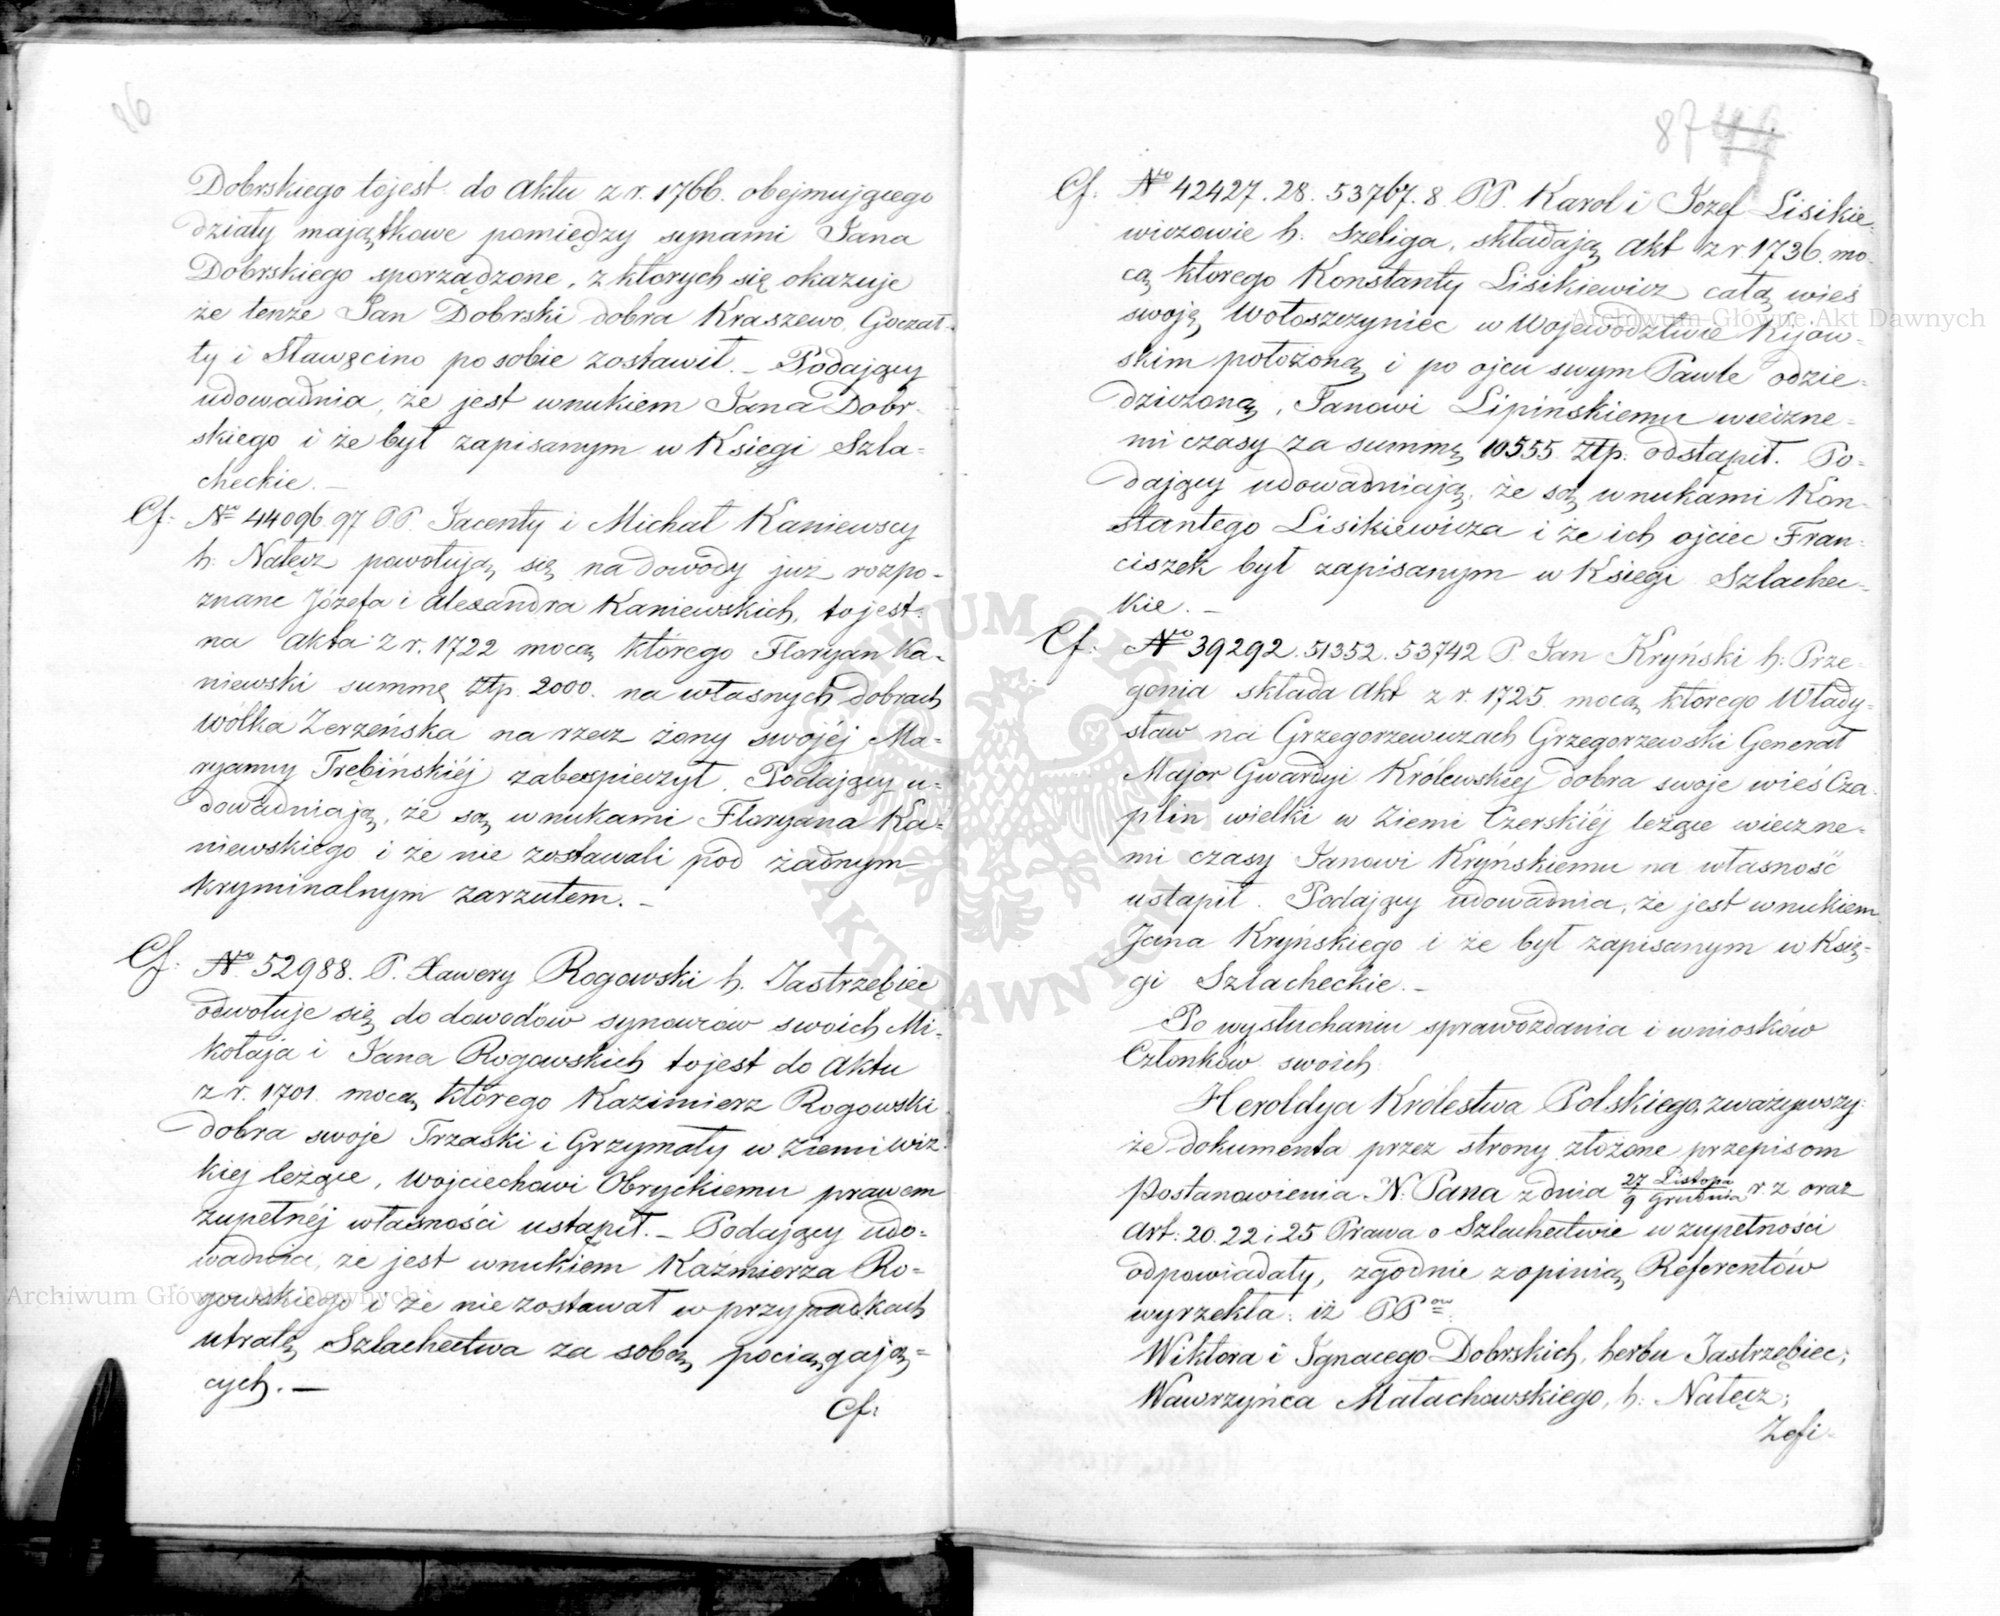 86
Dobrskiego tojest do aktu z r. 1766. obejmującego
działy majątkowe pomiędzy synami Jana
Dobrskiego sporządzone, z których się okazuje
że tenże Jan Dobrski dobra Kraszewo, Goczał-
ty i Sławęcino po sobie zostawił. – Podający
udowadnia, że jest wnukiem Jana Dobr-
skiego i że był zapisanym w Księgi Szla-
checkie. –
Cf: No 44096.97 PP. Jacenty i Michał Kaniewscy
h. Nałęcz powołują się na dowody już rozpo-
znane Józefa i Alexandra Kaniewskich, tojest:
na akta z r. 1722 mocą którego Floryan Ka-
niewski summę Złp. 2000. na własnych dobrach
Wólka Zerzeńska na rzecz żony swojéj Ma-
ryanny Trębińskiéj zabespieczył. Podający u-
dowadniają, że są wnukami Floryana Ka-
niewskiego i że nie zostawali pod żadnym
kryminalnym zarzutem. –
Cf: No 52988. P. Xawery Rogowski h. Jastrzębiec
odwołuje się do dowodów synowców swoich Mi-
kołaja i Jana Rogowskich tojest do aktu
z r. 1701. mocą którego Kazimierz Rogowski
dobra swoje Trzaski i Grzymały w Ziemi Wiz-
kiej leżące, Wojciechowi Obryckiemu prawem
zupełnéj własności ustąpił. – Podający udo-
wadnia, że jest wnukiem Kaźmierza Ro-
gowskiego i że nie zostawał w przypadkach
utratę Szlachectwa za sobą pociągają-
cych. –
Cf:
87
Cf: No 42427.28. 53767.8. PP. Karol i Jozef Lisikie-
wiczowie h. Szeliga, składają akt z r. 1736. mo-
cą ktorego Konstanty Lisikiewicz całą wieś
swoję Wołoszczyniec w Województwie Kijow-
skim położoną i po ojcu swym Pawle odzie-
dziczoną, Janowi Lipińskiemu wieczne-
mi czasy za summę 10555 Złp. odstąpił. Po-
dający udowadniają, że są wnukami Kon-
stantego Lisikiewicza i że ich ojciec Fran-
ciszek był zapisanym w Księgi Szlachec-
kie. –
Cf: No 39292. 51352. 53742 P. Jan Kryński h. Prze-
gonia składa akt z r. 1725. mocą ktorego Włady-
sław na Grzegorzewicach Grzegorzewski Generał
Major Gwardyi Królewskiej dobra swoje wieś Cza-
plin wielki w Ziemi Czerskiéj leżące wieczne-
mi czasy Janowi Kryńskiemu na własność
ustąpił. Podający udowadnia, że jest wnukiem
Jana Kryńskiego i że był zapisanym w Księ-
gi Szlacheckie. –
Po wysłuchaniu sprawozdania i wniosków
Członków swoich
Heroldya Królestwa Polskiego, zważywszy:
że dokumenta przez strony złożone przepisom
Postanowienia N. Pana z dnia 27 Listopa/9 Grudnia r. z oraz
Art: 20. 22 i 25 Prawa o Szlachectwie w zupełności
odpowiadały, zgodnie z opinią Referentów
wyrzekła: iż PPow
Wiktora i Ignacego Dobrskich, herbu Jastrzębiec;
Wawrzyńca Małachowskiego, h. Nałęcz;
Zefi-
Archiwum Główne Akt Dawnych
Archiwum Główne Akt Dawnych
ARCHIWUM GŁÓWNE AKT DAWNYCH